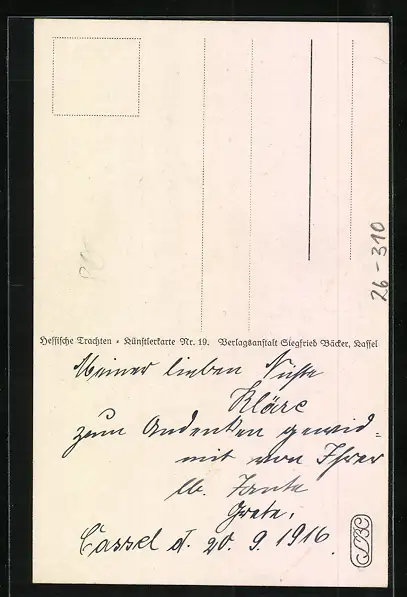 Hessische Trachten • Künstlerkarte Nr. 19. Verlagsanstalt Siegfried Bäcker, Kassel
Meiner lieben Nichte
Kläre
zum Andenken gewid=
mit von Ihrer
lb. Tante
Grete.
Cassel d. 20. 9. 1916.
26-310